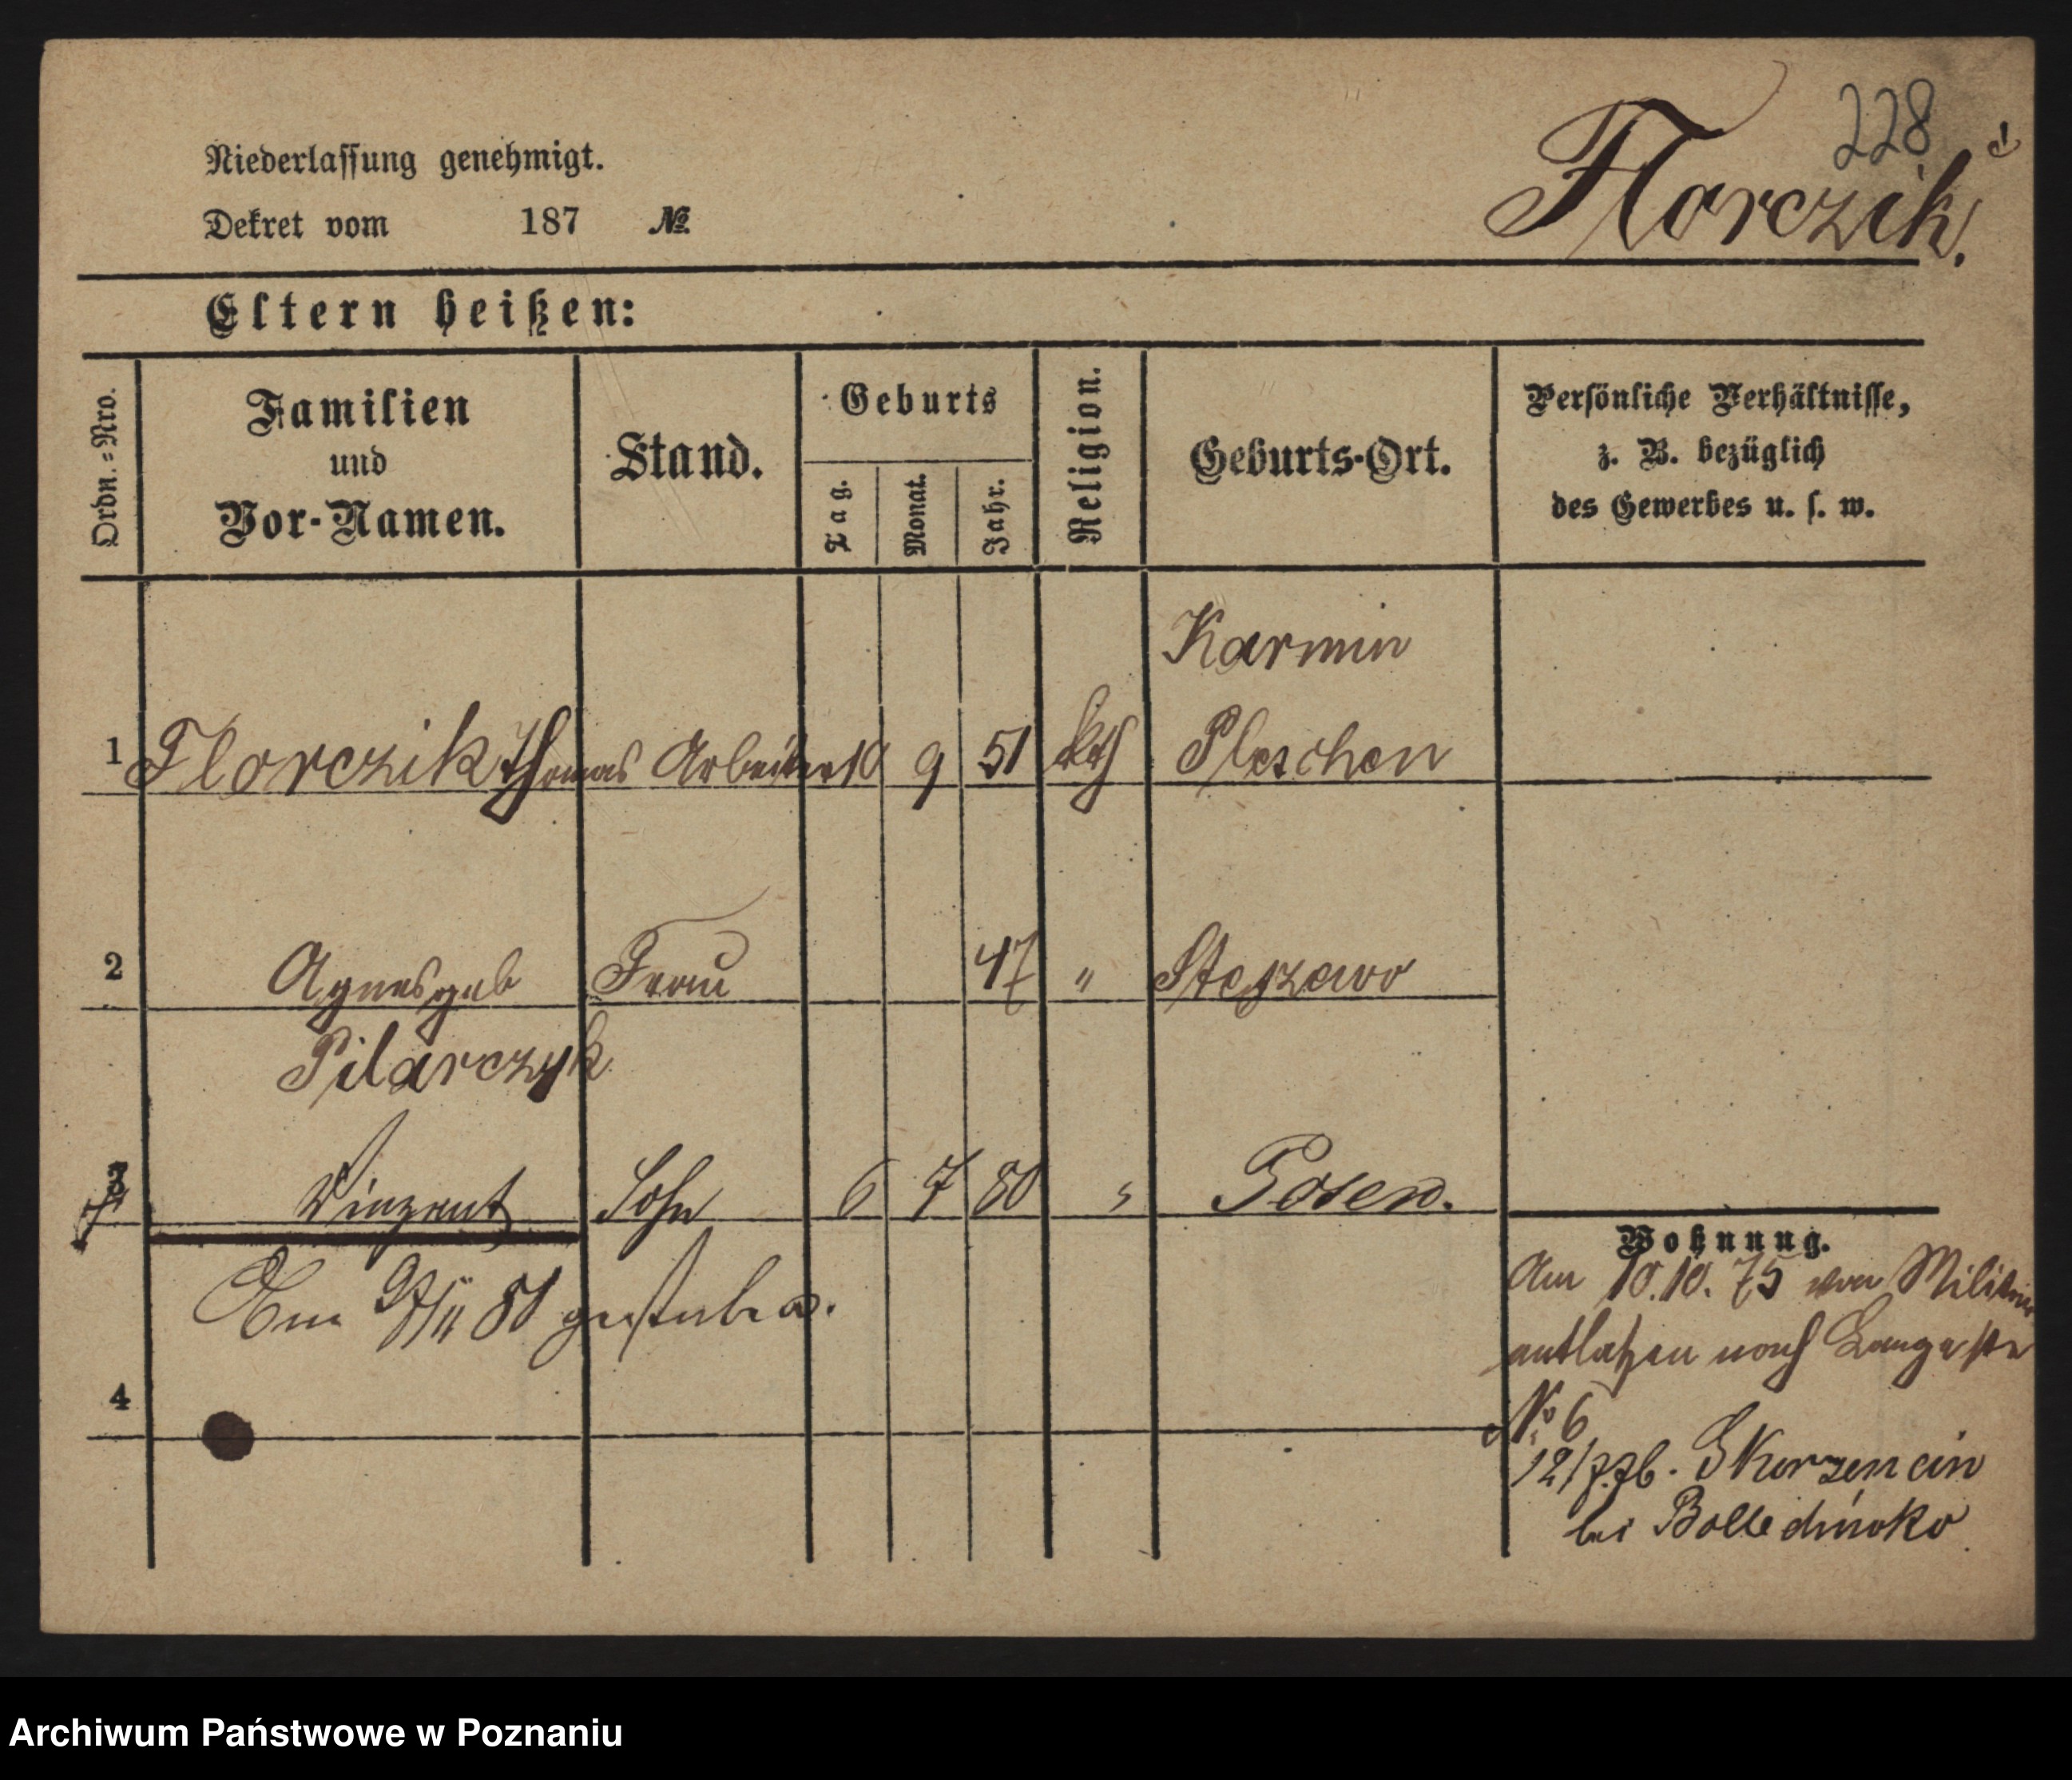 228
Florczik.
Niederlassung genehmigt.
Dekret vom 187 №
Eltern heißen:
Ordn.=Nro.
Familien
und
Vor-Namen.
Stand.
Geburts
Tag.
Monat.
Jahr.
Religion.
Geburts-Ort.
Persönliche Verhältnisse,
z. B. bezüglich
des Gewerbes u. s. w.
Karmin
1 Florczik Thomas Arbeiter 10 9 51 kth Pleschen
2 Agnes geb Frau 47 " Stęszewo
Pilarczyk
3 Vinzent Sohn 6 7 80 " Posen.
Am 81 gestorben.
4
Wohnung.
Am 10.10.75 vom Militair
entlaßen nach Langestr
No 6
12/7.76. Skorzencin
bei
Archiwum Państwowe w Poznaniu